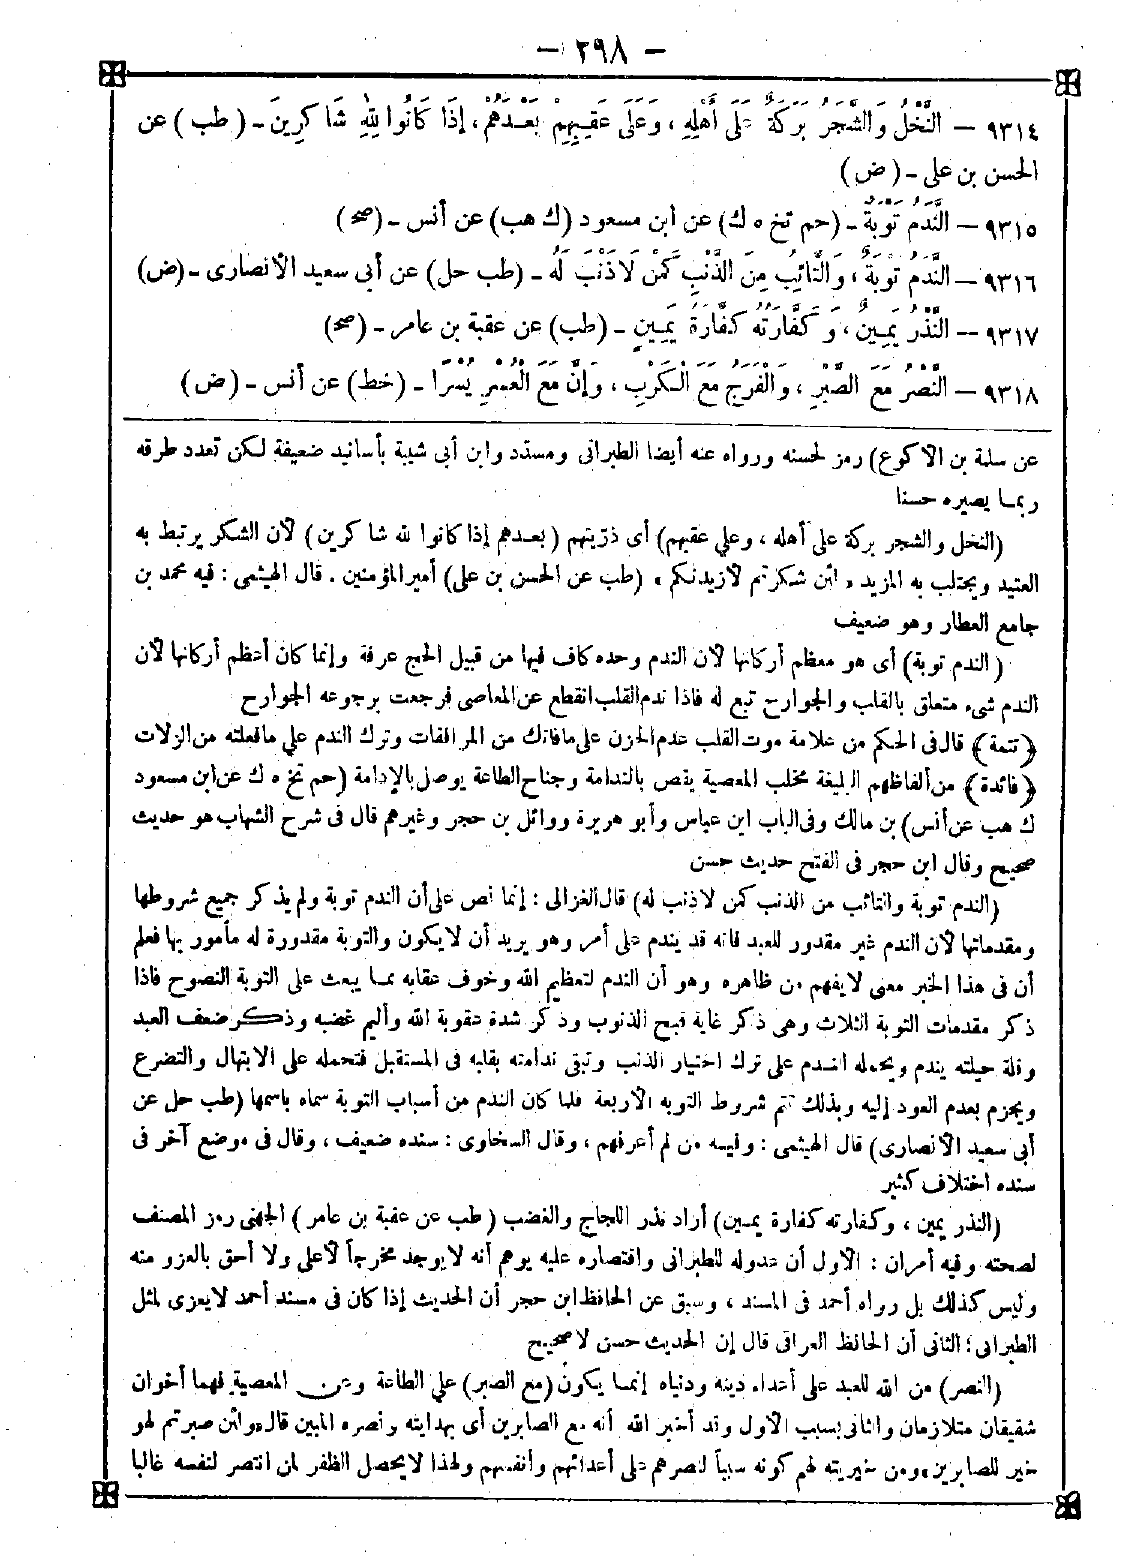 — ٢٩٨ —
٩٣١٤ — النَّخْلُ وَالشَّجَرُ بَرَكَةٌ عَلَى أَهْلِهِ، وَعَلَى عَقِبِهِمْ بَعْدَهُمْ، إِذَا كَانُوا لِلّٰهِ شَاكِرِينَ - ( طب ) عن
الحسن بن على - ( ض )
٩٣١٥ — النَّدَمُ تَوْبَةٌ - (حم تخ ه ك) عن ابن مسعود (ك هب) عن أنس - (صح)
٩٣١٦ — النَّدَمُ تَوْبَةٌ، وَالتَّائِبُ مِنَ الذَّنْبِ كَمَنْ لَاذَنْبَ لَهُ - (طب حل) عن أبى سعيد الأنصارى - (ض)
٩٣١٧ — النَّذْرُ يَمِينٌ، وَكَفَّارَتُهُ كَفَّارَةُ يَمِينٍ - (طب) عن عقبة بن عامر - (صح)
٩٣١٨ — النَّصْرُ مَعَ الصَّبْرِ، وَالْفَرَجُ مَعَ الْكَرْبِ، وَإِنَّ مَعَ الْعُسْرِ يُسْرًا - (خط) عن أنس - (ض)
عن سلمة بن الأكوع) رمز لحسنه ورواه عنه أيضا الطبرانى ومسدد وابن أبى شيبة بأسانيد ضعيفة لكن تعدد طرقه
ربما يصيره حسنا
(النخل والشجر بركة على أهله ، وعلى عقبهم) أى ذريتهم (بعدهم إذا كانوا لله شاكرين) لأن الشكر يرتبط به
العتيد ويجتلب به المزيد « لئن شكرتم لأزيدنكم » (طب عن الحسن بن على) أمير المؤمنين . قال الهيثمى : فيه محمد بن
جامع العطار وهو ضعيف
(الندم توبة) أى هو معظم أركانها لأن الندم وحده كاف فيها من قبيل الحج عرفة وإنما كان أعظم أركانها لأن
الندم شىء متعلق بالقلب والجوارح تبع له فاذا ندم القلب انقطع عن المعاصى فرجعت برجوعه الجوارح
﴿تتمة﴾ قال فى الحكم من علامة موت القلب عدم الحزن على مافاتك من المرافقات وترك الندم على مافعلته من الزلات
﴿فائدة﴾ من ألفاظهم البليغة مخلب المعصية يقص بالندامة وجناح الطاعة يوصل بالإدامة (حم تخ ه ك عن ابن مسعود
ك هب عن أنس) بن مالك وفى الباب ابن عباس وأبو هريرة ووائل بن حجر وغيرهم قال فى شرح الشهاب هو حديث
صحيح وقال ابن حجر فى الفتح حديث حسن
(الندم توبة والتائب من الذنب كمن لاذنب له) قال الغزالى : إنما نص على أن الندم توبة ولم يذكر جميع شروطها
ومقدماتها لأن الندم غير مقدور للعبد فانه قد يندم على أمر وهو يريد أن لايكون والتوبة مقدورة له مأمور بها فعلم
أن فى هذا الخبر معنى لايفهم من ظاهره وهو أن الندم لتعظيم الله وخوف عقابه مما يبعث على التوبة النصوح فاذا
ذكر مقدمات التوبة الثلاث وهى ذكر غاية قبح الذنوب وذكر شدة عقوبة الله وأليم غضبه وذكر ضعف العبد
وقلة حيلته يندم ويحمله الندم على ترك اختيار الذنب وتبقى ندامته بقلبه فى المستقبل فتحمله على الابتهال والتضرع
ويجزم بعدم العود إليه وبذلك تتم شروط التوبة الأربعة فلما كان الندم من أسباب التوبة سماه باسمها (طب حل عن
أبى سعيد الأنصارى) قال الهيثمى : وفيه من لم أعرفهم ، وقال السخاوى : سنده ضعيف ، وقال فى موضع آخر فى
سنده اختلاف كثير
(النذر يمين ، وكفارته كفارة يمين) أراد نذر اللجاج والغضب (طب عن عقبة بن عامر) الجهنى رمز المصنف
لصحته وفيه أمران : الأول أن عدوله للطبرانى واقتصاره عليه يوهم أنه لايوجد مخرجاً لأعلى ولا أحق بالعزو منه
وليس كذلك بل رواه أحمد فى المسند ، وسبق عن الحافظ ابن حجر أن الحديث إذا كان فى مسند أحمد لايعزى لمثل
الطبرانى؛ الثانى أن الحافظ العراقى قال إن الحديث حسن لا صحيح
(النصر) من الله للعبد على أعداء دينه ودنياه إنما يكون (مع الصبر) على الطاعة وعن المعصية فهما أخوان
شقيقان متلازمان والثانى بسبب الأول وقد أخبر الله أنه مع الصابرين أى بهدايته ونصره المبين قال «ولئن صبرتم لهو
خير للصابرين» ومن خيريته لهم كونه سبباً لنصرهم على أعدائهم وأنفسهم ولهذا لايحصل الظفر لمن انتصر لنفسه غالبا